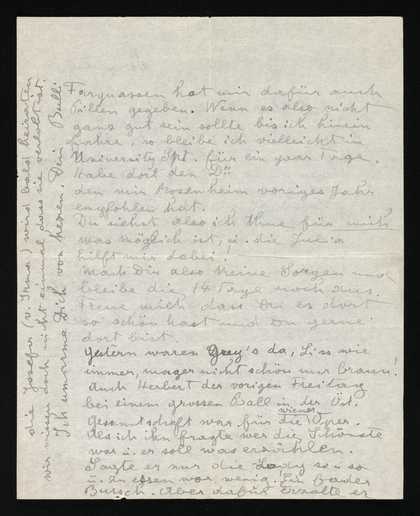 Farquassen hat mir dafür auch
Pillen gegeben. Wenn es also nicht
ganz gut sein sollte bis ich hinein
fahre, so bleibe ich vielleicht in
University Hpt. für ein paar Tage.
Habe dort den Dr.
den mir Rosenheim voriges Jahr
empfohlen hat.
Du siehst also ich thue für mich
was möglich ist, u. die Julia
hilft mir dabei!
Mach Dir also keine Sorgen und
bleibe die 14 Tage noch aus.
Freue mich dass Du es dort
so schön hast und Du gerne
dort bist.
Gestern waren Grey's da, Liss wie
immer, mager nicht schön nur braun!
Auch Herbert der vorigen Freitag
bei einem grossen Ball in der Öst.
Gesantschaft war für die wiener Oper.
Als ich ihn fragte wer die Schönste
war u. er soll was erzählen.
Sagte er nur die Lady so u so
u. zu essen war wenig. Ein fader
Bursch. Aber dafür erzälte er
die Josefin (v. Irma) wird bald heiraten
wir wissen doch nicht einmal dass sie verlobt ist.
Ich umarme Dich von herzen. Dein Bulli